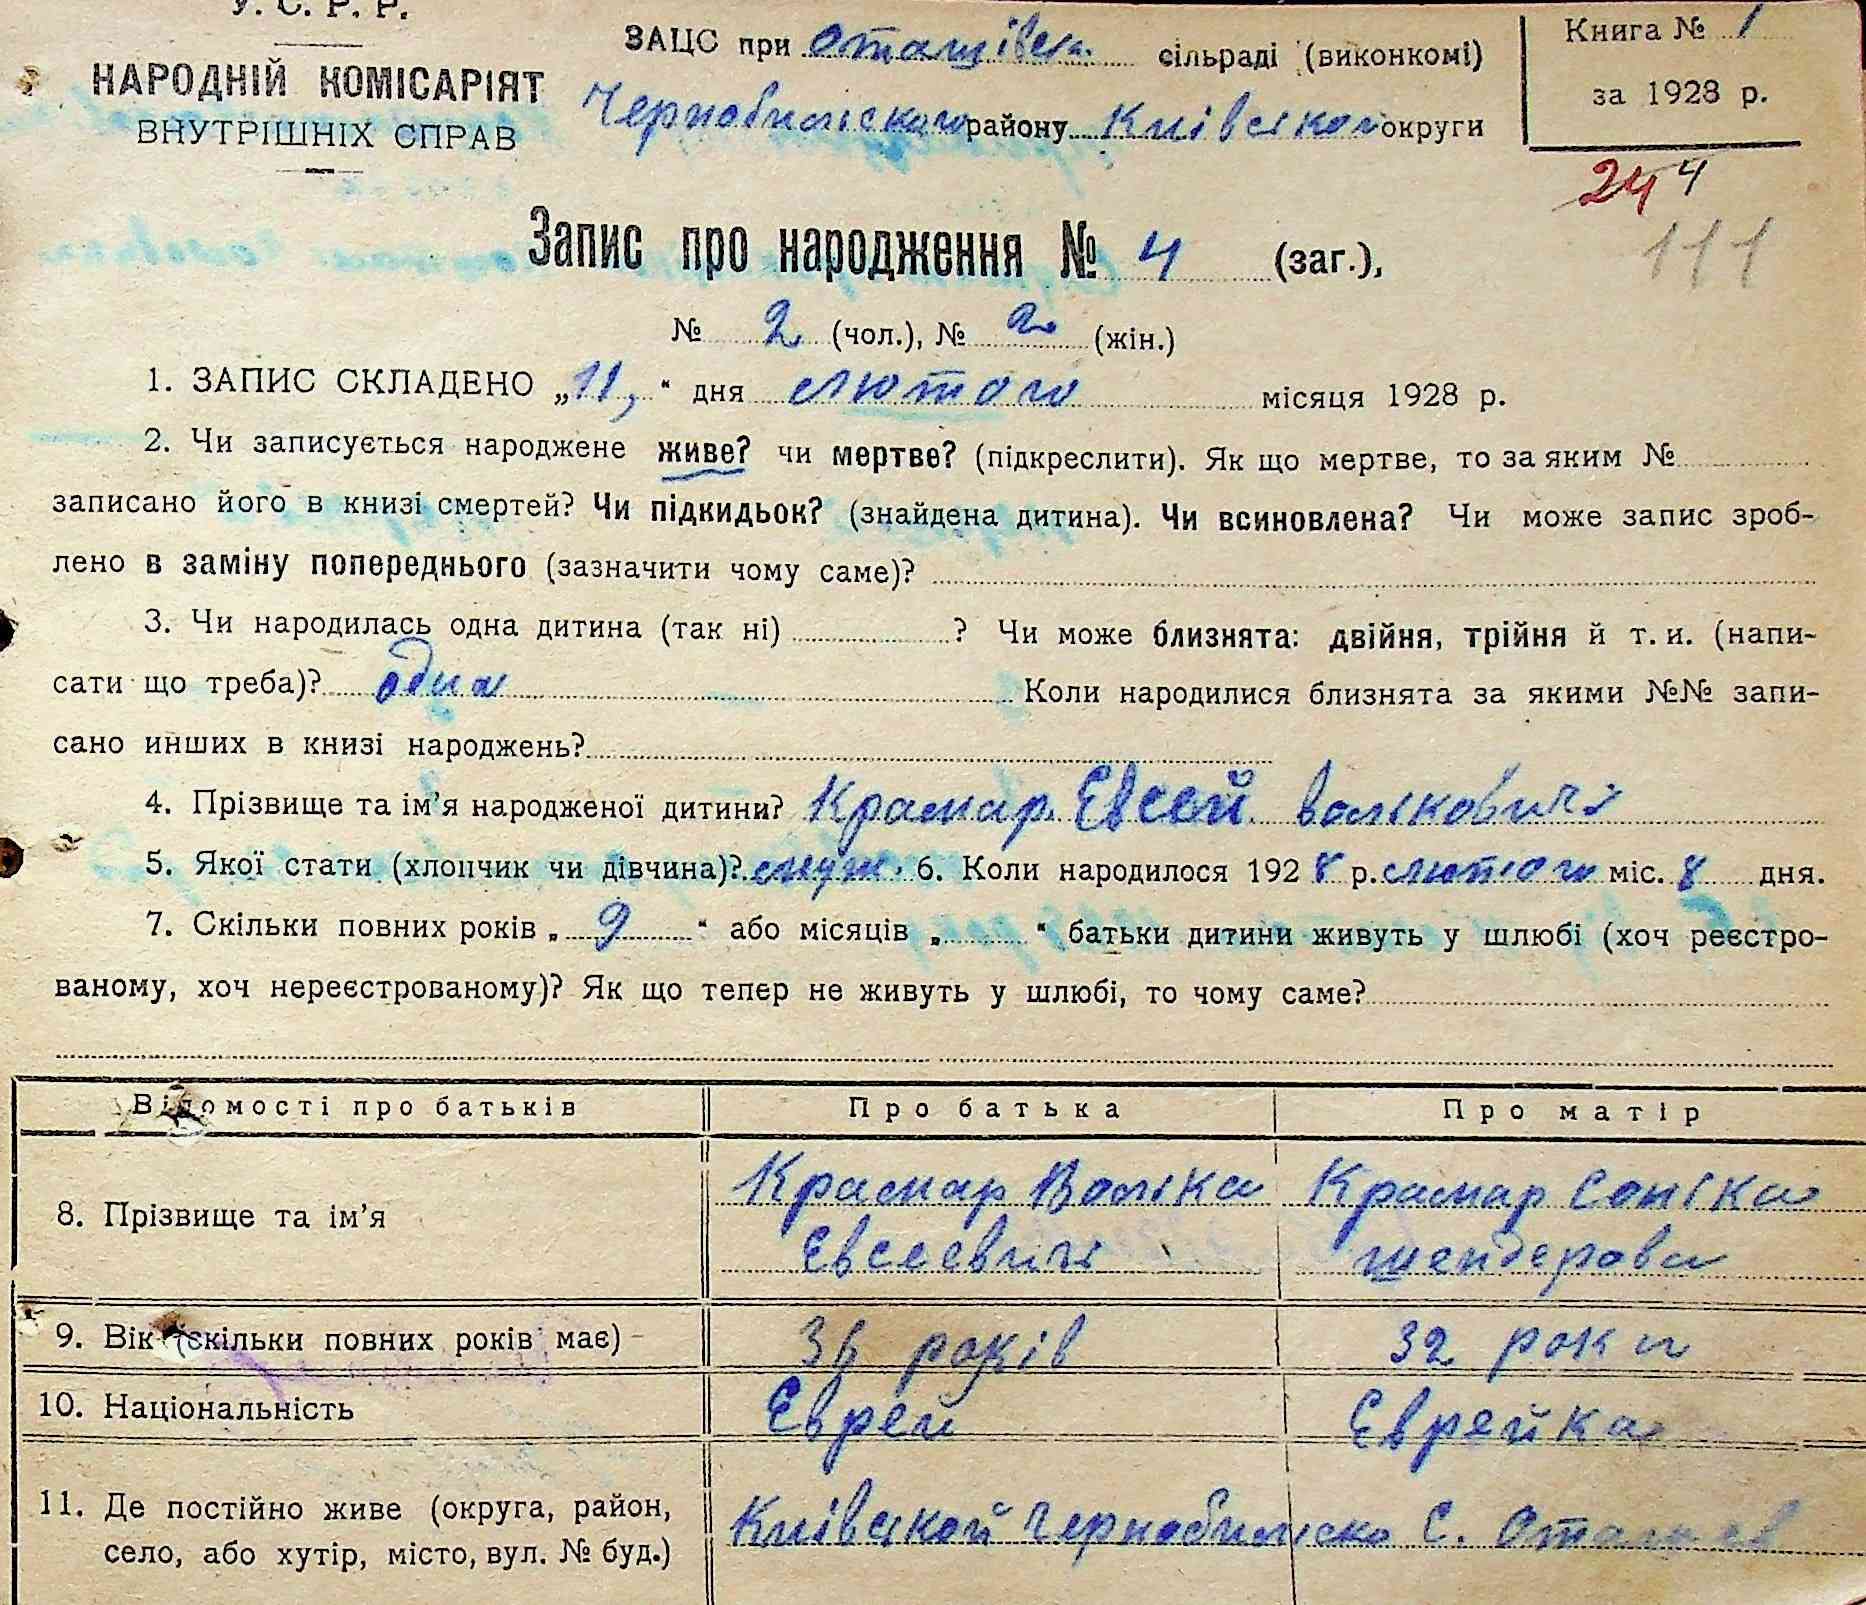 У. С. Р. Р.
НАРОДНІЙ КОМІСАРІЯТ
ВНУТРІШНІХ СПРАВ
ЗАЦС при Оташівск. сільраді (виконкомі)
Чернобильского району Київской округи
Книга № 1
за 1928 р.
24 4
111
Запис про народження № 4 (заг.),
№ 2 (чол.), № 2 (жін.)
1. ЗАПИС СКЛАДЕНО „11,“ дня лютого місяця 1928 р.
2. Чи записується народжене живе? чи мертве? (підкреслити). Як що мертве, то за яким №
записано його в книзі смертей? Чи підкидьок? (знайдена дитина). Чи всиновлена? Чи може запис зроб-
лено в заміну попереднього (зазначити чому саме)?
3. Чи народилась одна дитина (так ні) ? Чи може близнята: двійня, трійня й т. и. (напи-
сати що треба)? одна Коли народилися близнята за якими №№ запи-
сано инших в книзі народжень?
4. Прізвище та ім'я народженої дитини? Крамар Евсей Волькович
5. Якої стати (хлопчик чи дівчина)? муж. 6. Коли народилося 1928 р. лютого міс. 8 дня.
7. Скільки повних років „ 9 “ або місяців „ “ батьки дитини живуть у шлюбі (хоч реєстро-
ваному, хоч нереєстрованому)? Як що тепер не живуть у шлюбі, то чому саме?
Відомості про батьків Про батька Про матір
8. Прізвище та ім'я Крамар Волька Крамар Сонька
Евсеевич Шендерова
9. Вік (скільки повних років має) 36 років 32 роки
10. Національність Еврей Еврейка
11. Де постійно живе (округа, район,
село, або хутір, місто, вул. № буд.) Київской Чернобильско С. Оташев